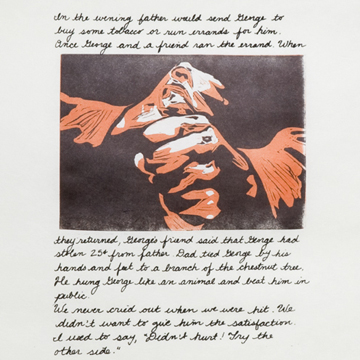 In the evening father would send George to
buy some tobacco or run errands for him.
Once George and a friend ran the errand. When
they returned, George's friend said that George had
stolen 25¢ from father. Dad tied George by his
hands and feet to a branch of the chestnut tree.
He hung George like an animal and beat him in
public.
We never cried out when we were hit. We
didn't want to give him the satisfaction.
I used to say, "Didn't hurt! Try the
other side."